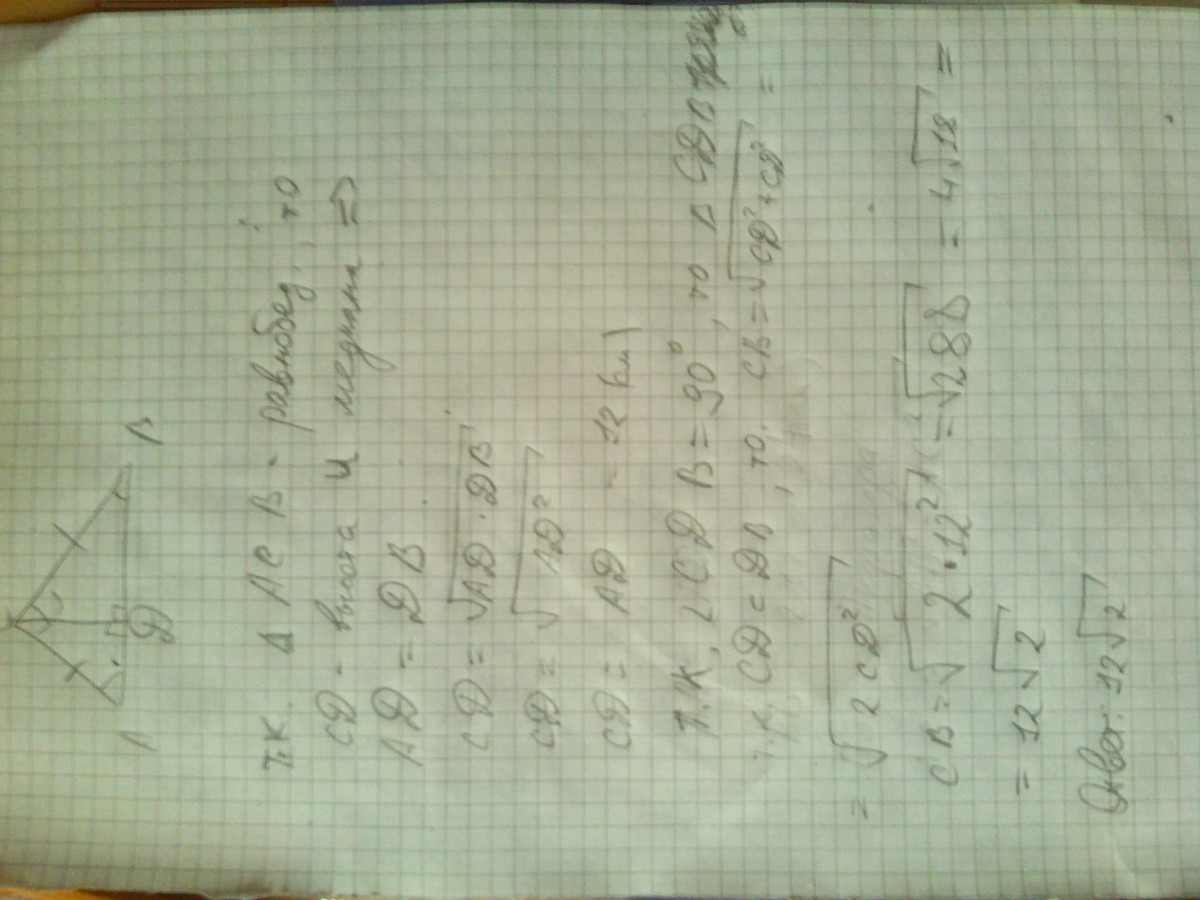 B
D
т.к. Δ ACB - равнобед, то
CD - высота и медиана ⇒
AD = DB
CD = √AD · DB
CD = √AD²
CD = AD = 12 km
т.к. ∠ CDB = 90°, то Δ CDB
т.к. CD = DB, то. CB = √CD² + CD² =
= √2CD²
CB = √2 · 12² = √288 = 4√18 =
= 12√2
Ответ: 12√2